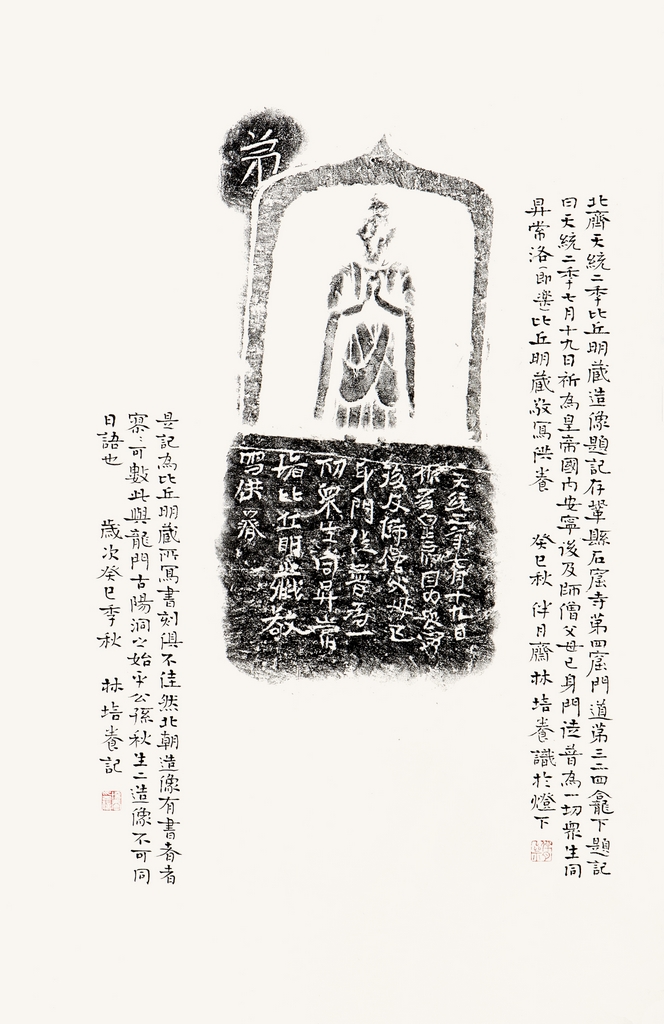 北齊天統二年比丘明藏造像題記存鞏縣石窟寺第四窟門道第三二四龕下題記
曰天統二年七月十九日祈為皇帝國內安寧後及師僧父母己身門徒普為一切衆生同
昇常洛(即樂)比丘明藏敬寫供養 癸巳秋 伴月齋林培養識於燈下
弟
天統二年七月十九日
後及師僧父母己
身門徒普為一
切衆生同昇常
比丘明藏敬
寫供養
是記為比丘明藏所寫書刻俱不佳然北朝造像有書者者
寥寥可數此與龍門古陽洞之始平公孫秋生二造像不可同
日語也 歲次癸巳季秋 林培養記